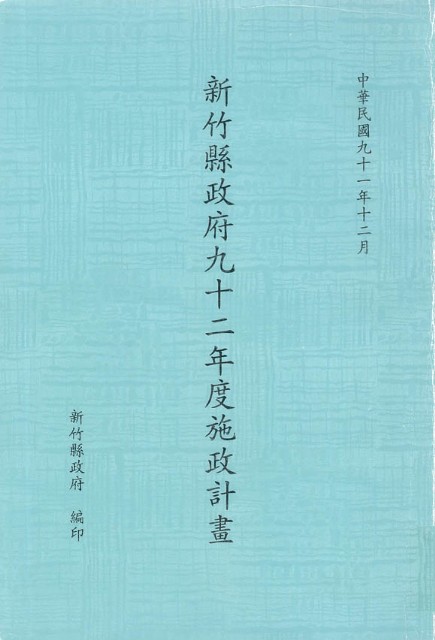 中華民國九十一年十二月
新竹縣政府九十二年度施政計畫
新竹縣政府 編印